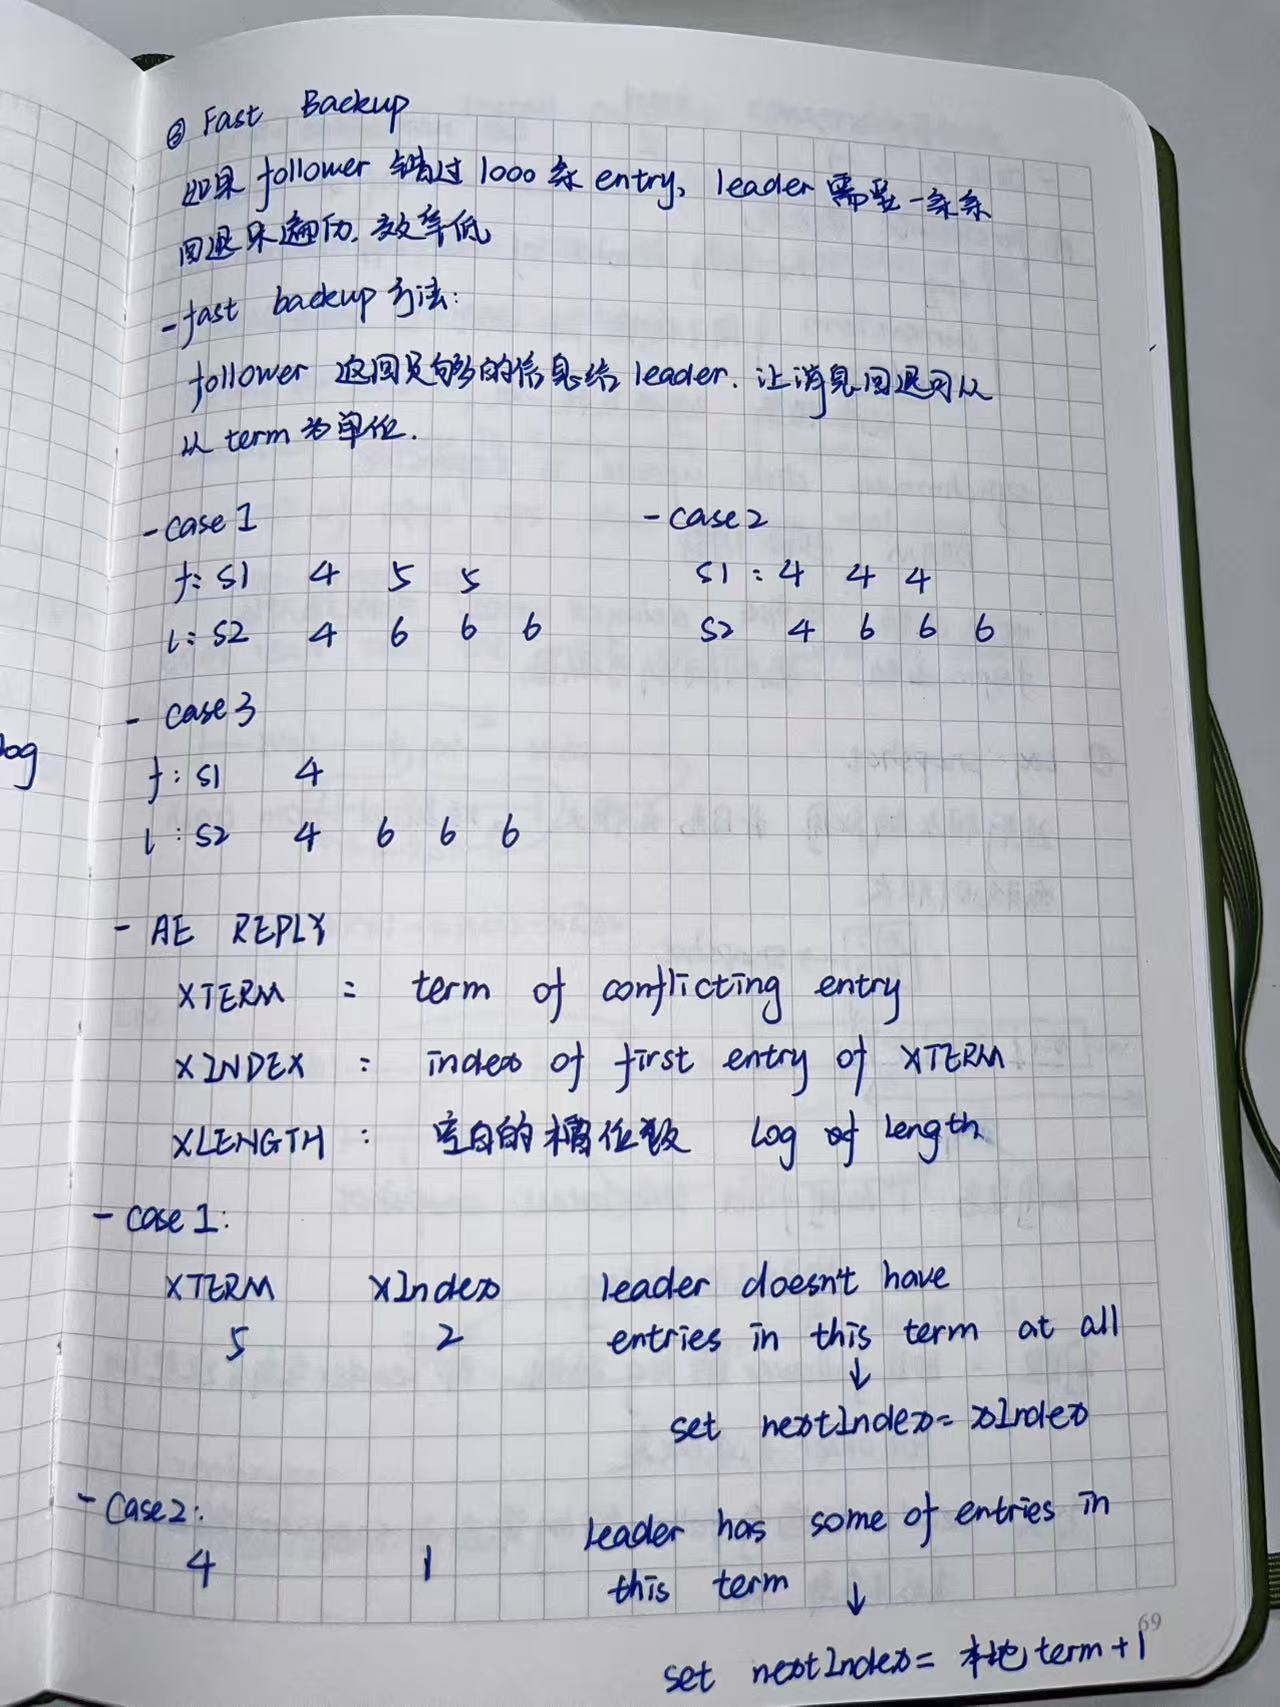 ③ Fast Backup
如果 follower 错过 1000 条 entry, leader 需要一条条
回退来遍历. 效率低
- fast backup 方法:
follower 返回足够的信息给 leader. 让消息回退可以
以 term 为单位.
- case 1
f: S1 4 5 5
l: S2 4 6 6 6
- case 2
S1 : 4 4 4
S2 4 6 6 6
- case 3
f : S1 4
l : S2 4 6 6 6
og
- AE REPLY
XTERM : term of conflicting entry
XINDEX : index of first entry of XTERM
XLENGTH : 空白的槽位数 Log of length
- case 1:
XTERM XIndex leader doesn't have
5 2 entries in this term at all
↓
set nextIndex = xIndex
- Case 2:
4 1 leader has some of entries in
this term ↓
set nextIndex = 本地 term + 1
69